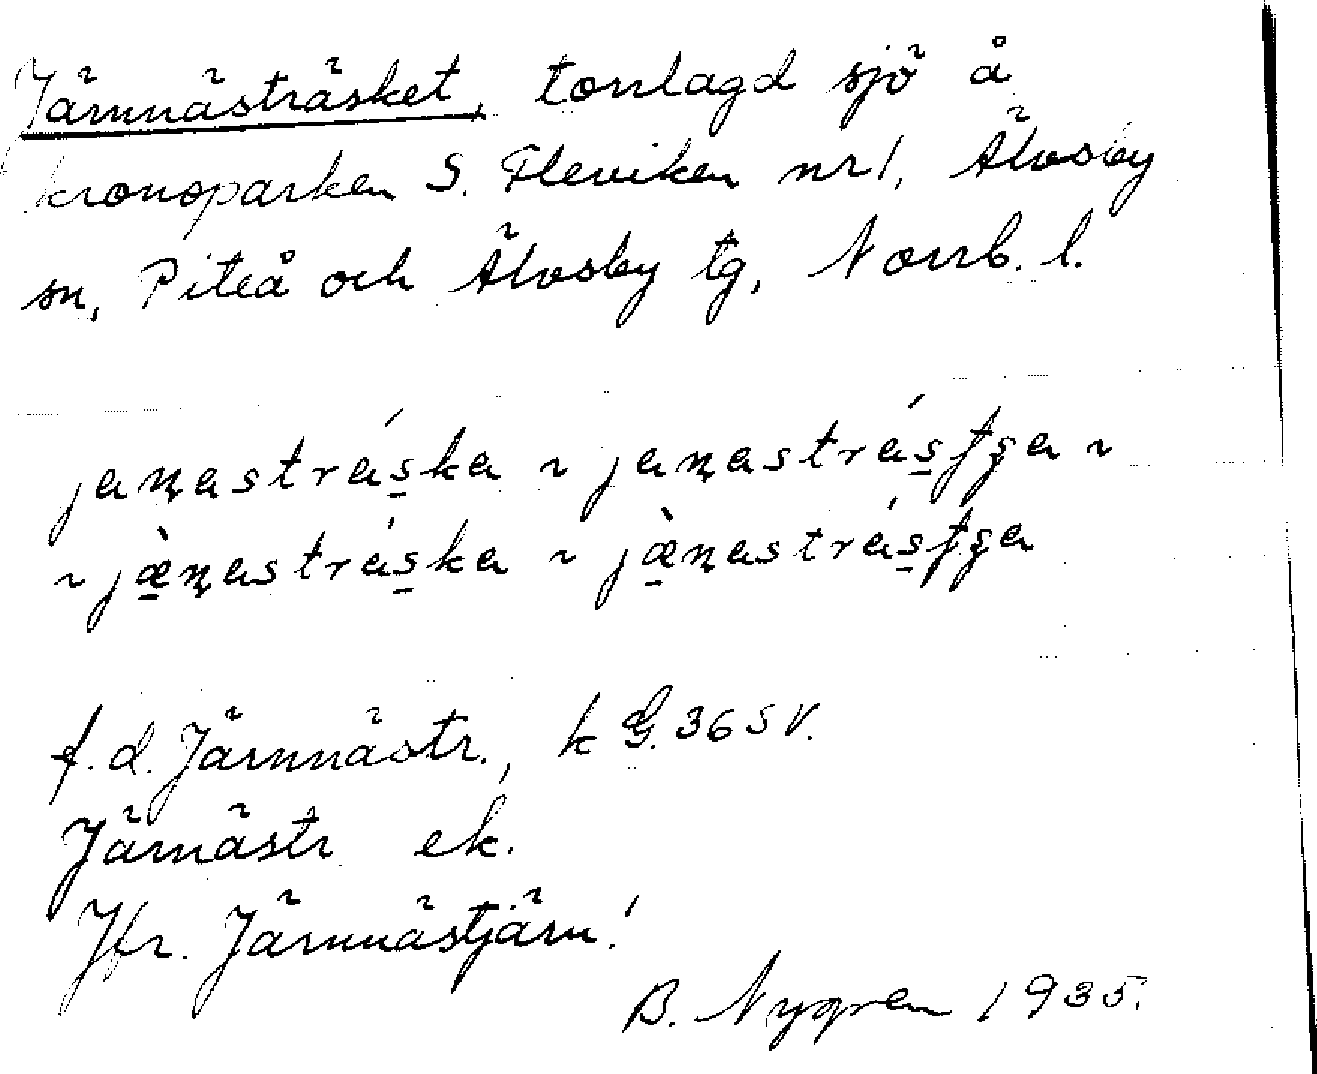 Järnnästräsket, torrlagd sjö å
kronoparken S. Fleviken nr 1, Älvsby
sn, Piteå och Älvsby tg, Norrb. l.
jaṇastrás̱ka ~ jaṇastrás̱ʃʂa ~
~ jæ̱̀ṇastrás̱ka ~ jæ̱̀ṇastrás̱ʃʂa
f.d. Järnnästr., k G. 36 SV.
Järnästr ek.
Jfr. Järnnästjärn!
B. Nygren 1935.